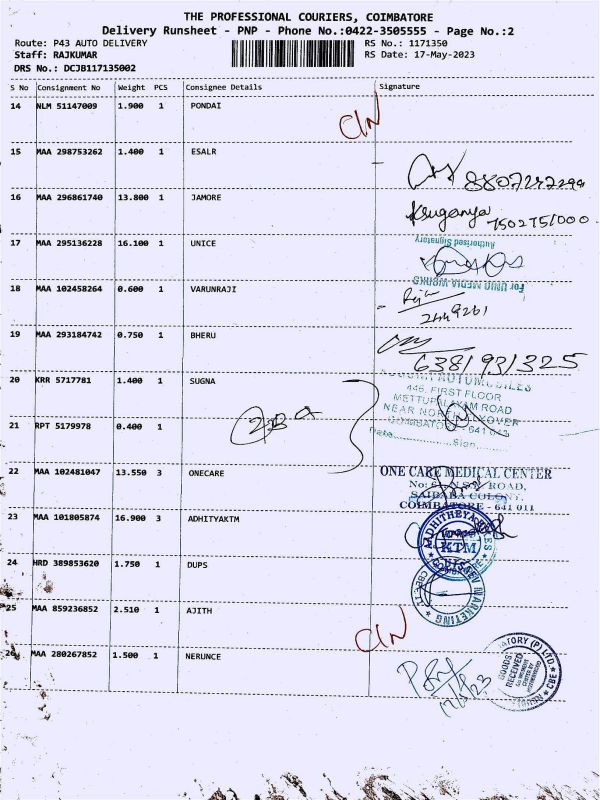 THE PROFESSIONAL COURIERS, COIMBATORE
Delivery Runsheet - PNP - Phone No.:0422-3505555 - Page No.:2
Route: P43 AUTO DELIVERY RS No.: 1171350
Staff: RAJKUMAR RS Date: 17-May-2023
DRS No.: DCJB117135002
S No Consignment No Weight PCS Consignee Details Signature
14 NLM 51147009 1.900 1 PONDAI
C/N
15 MAA 298753262 1.400 1 ESALR
8807247299
16 MAA 296861740 13.800 1 JAMORE
Ksuganya 7502751000
17 MAA 295136228 16.100 1 UNICE
Authorised Signatory
18 MAA 102458264 0.600 1 VARUNRAJI
For UNIQ MEDIA WORKS
2449261
19 MAA 293184742 0.750 1 BHERU
6381931325
20 KRR 5717781 1.400 1 SUGNA
AUTOMOBILES
446, FIRST FLOOR
METTUPALAYAM ROAD
21 RPT 5179978 0.400 1
COIMBATORE - 641 043
Date Sign
22 MAA 102481047 13.550 3 ONECARE
ONE CARE MEDICAL CENTER
ROAD,
SAIBABA COLONY,
COIMBATORE - 641 011
23 MAA 101805874 16.900 3 ADHITYAKTM
KTM
24 HRD 389853620 1.750 1 DUPS
MARKETING
25 MAA 859236852 2.510 1 AJITH
C/N
26 MAA 280267852 1.500 1 NERUNCE
GOODS
RECEIVED